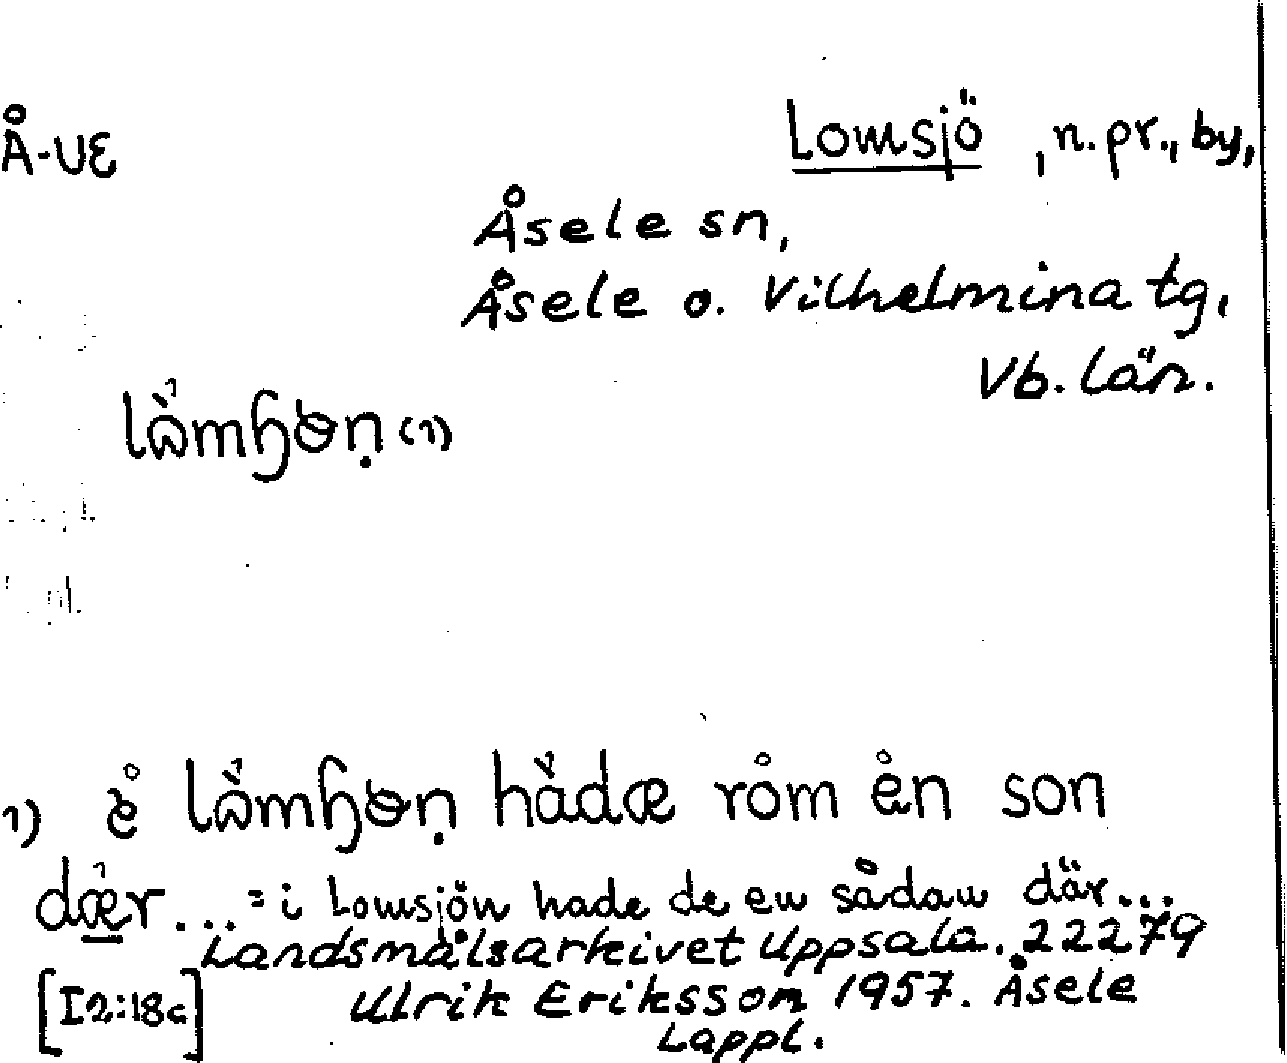 Å-UE
Lomsjö, n.pr., by,
Åsele sn,
Åsele o. Vilhelmina tg,
Vb. län.
(1)
1) son
... = i Lomsjön hade de en sådan där...
Landsmålsarkivet Uppsala. 22279
[I2:18c] Ulrik Eriksson 1957. Åsele
Lappl.